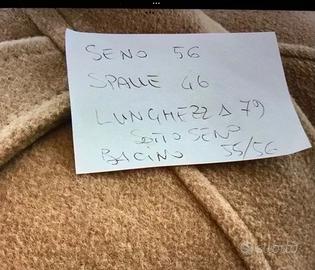 SENO 56
SPALLE 46
LUNGHEZZA 79
SOTTO SENO
BACINO 55/56
subito